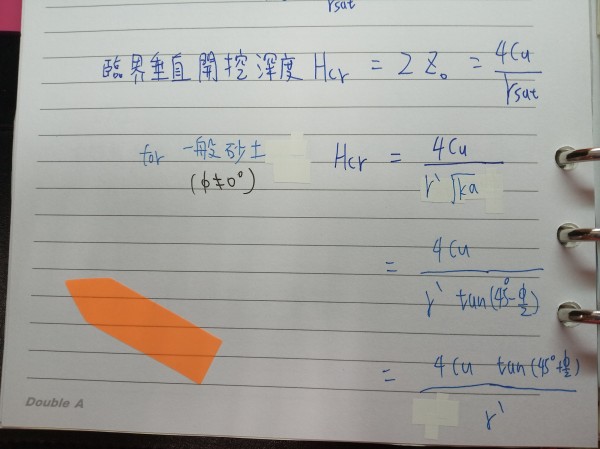 γsat
臨界垂直開挖深度 Hcr = 2 Z₀ = 4Cu / √γsat
for 一般砂土 Hcr = 4Cu / γ' √ka
(φ≠0°)
= 4Cu / γ' tan(45°-φ/2)
= 4Cu tan(45°+φ/2) / γ'
Double A